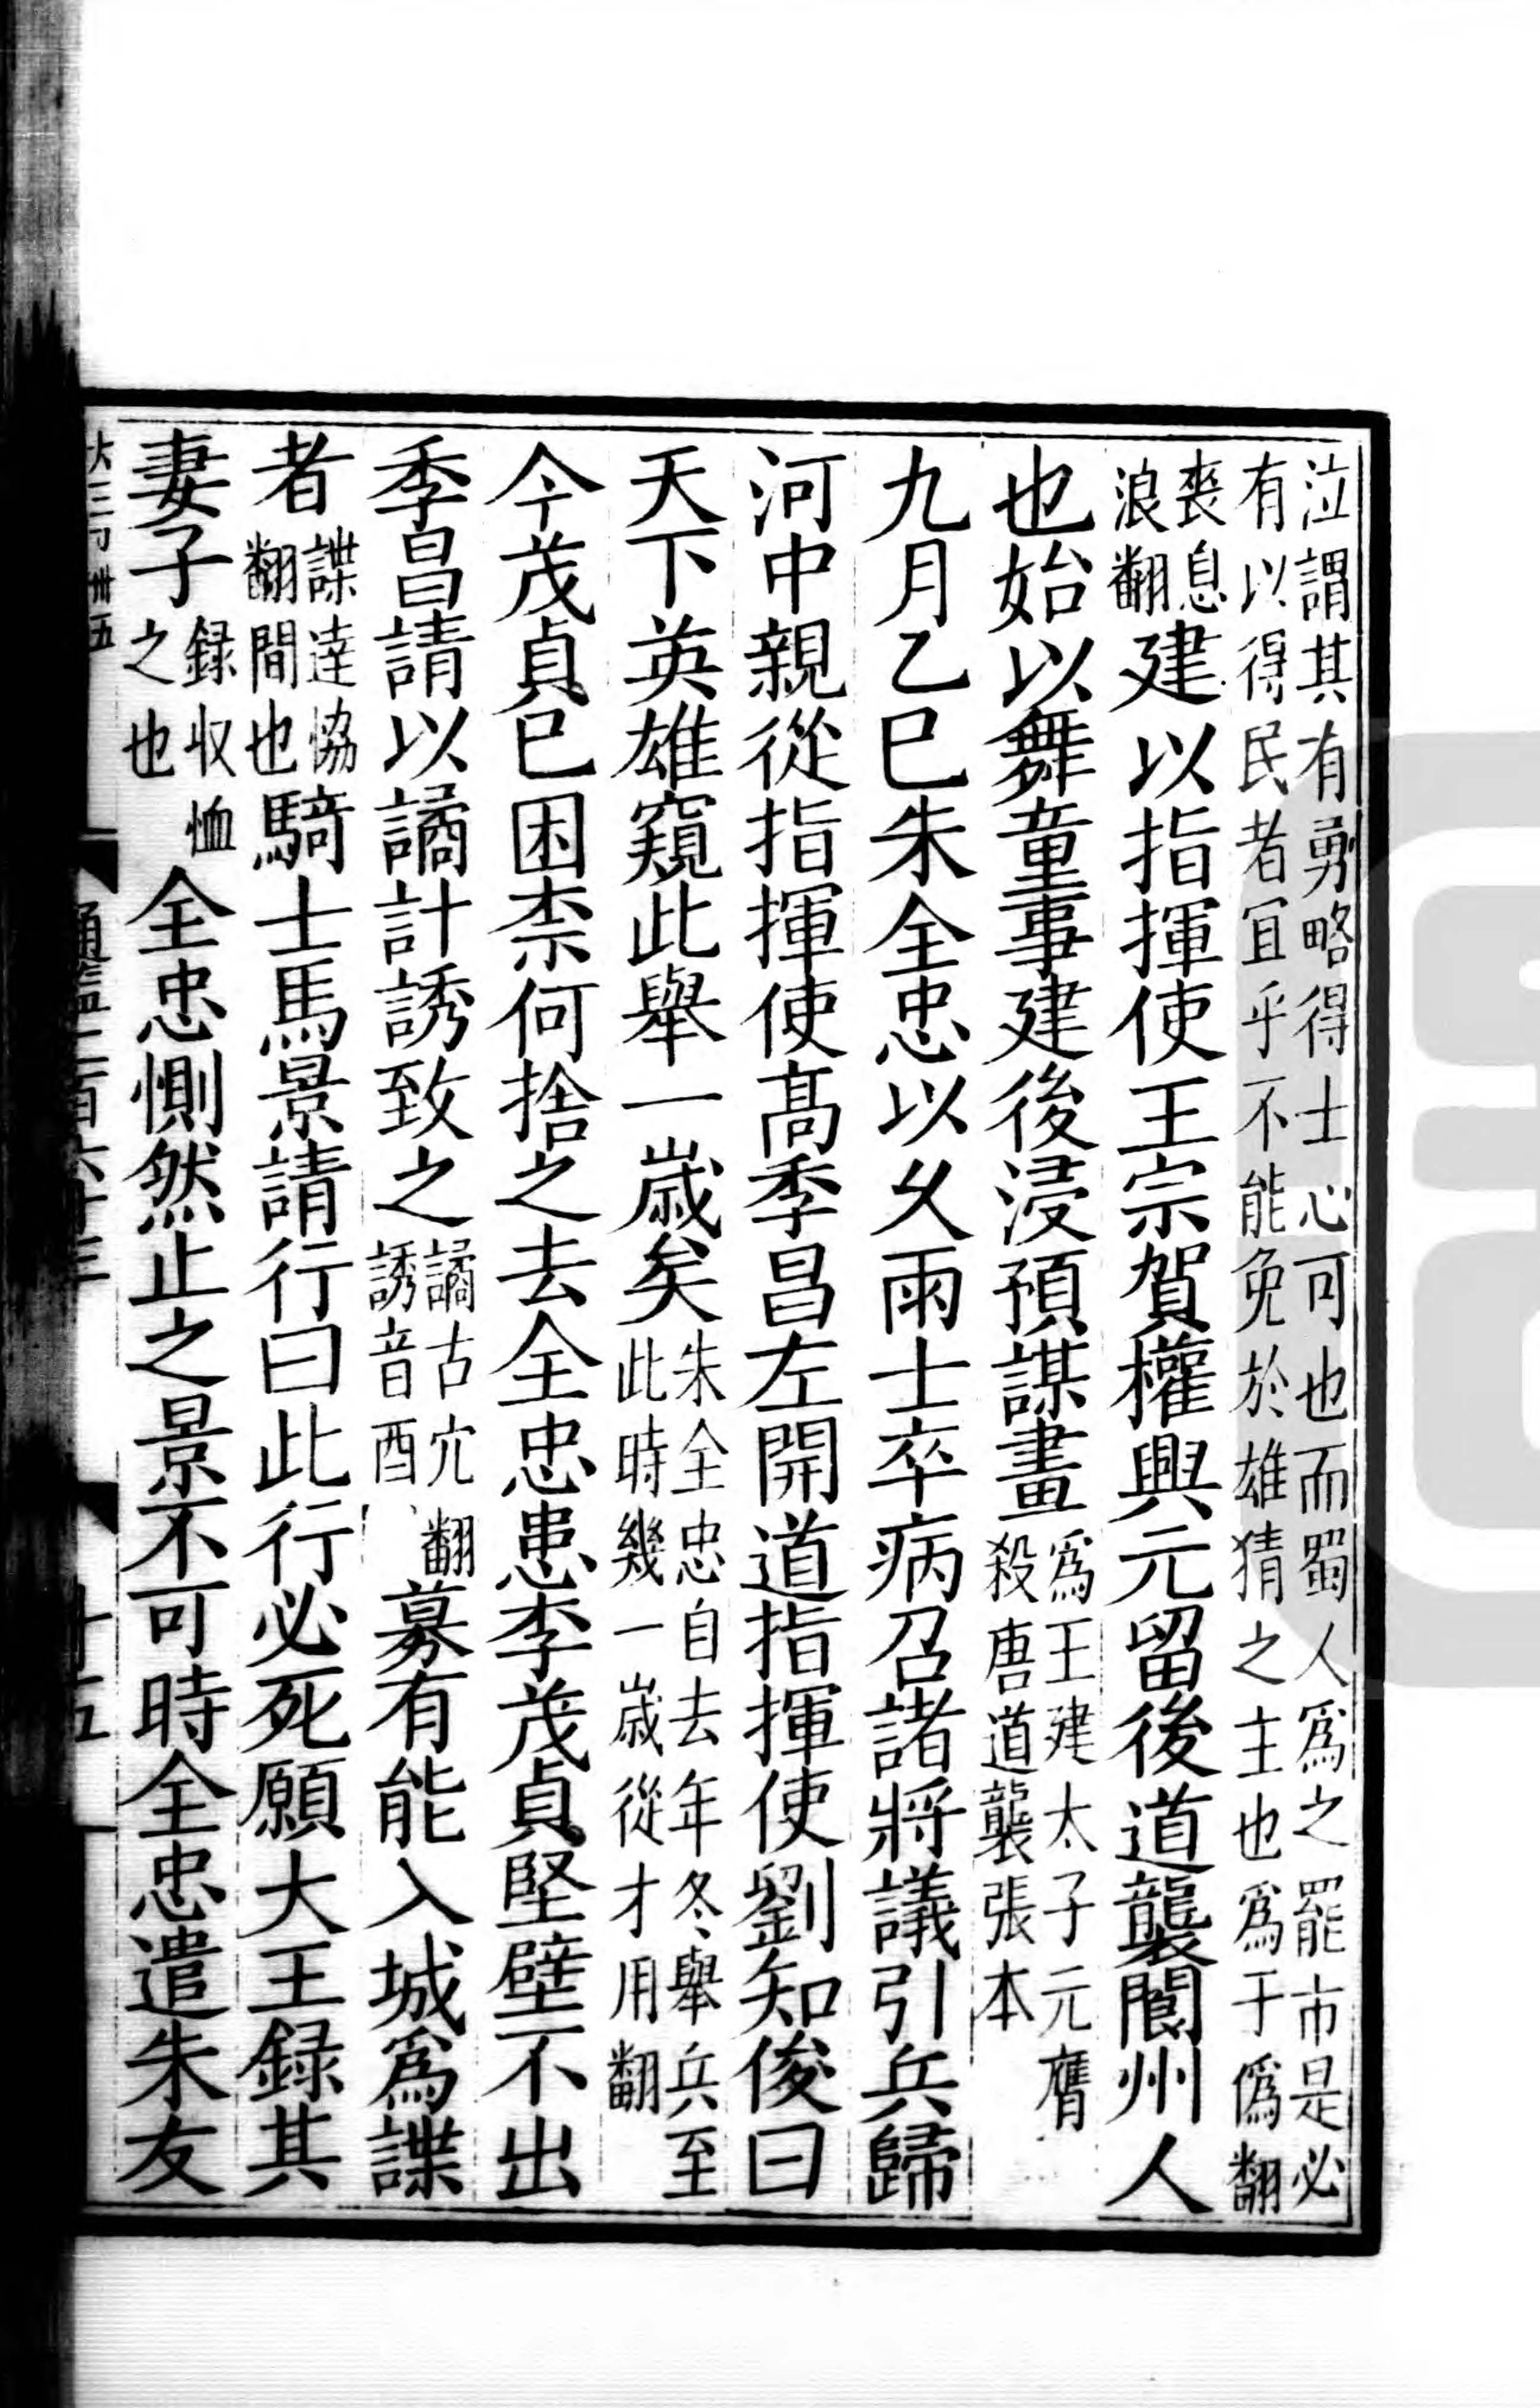 泣謂其有勇略得士心可也而蜀人爲之罷市是必
有以得民者冝乎不能免於雄猜之主也爲于僞翻
喪息
浪翻
建以指揮使王宗賀權興元留後道襲閬州人
也始以舞童事建後浸預謀畫
爲王建太子元膺
殺唐道襲張本
九月乙巳朱全忠以乆雨士卒病召諸將議引兵歸
河中親從指揮使髙季昌左開道指揮使劉知俊曰
天下英雄窺此舉一歳矣
朱全忠自去年冬舉兵至
此時幾一歳從才用翻
今茂貞已困柰何捨之去全忠患李茂貞堅壁不出
季昌請以譎計誘致之
譎古穴翻
誘音酉
募有能入城爲諜
者
諜達協
翻間也
騎士馬景請行曰此行必死願大王録其
妻子
録収恤
之也
全忠惻然止之景不可時全忠遣朱友